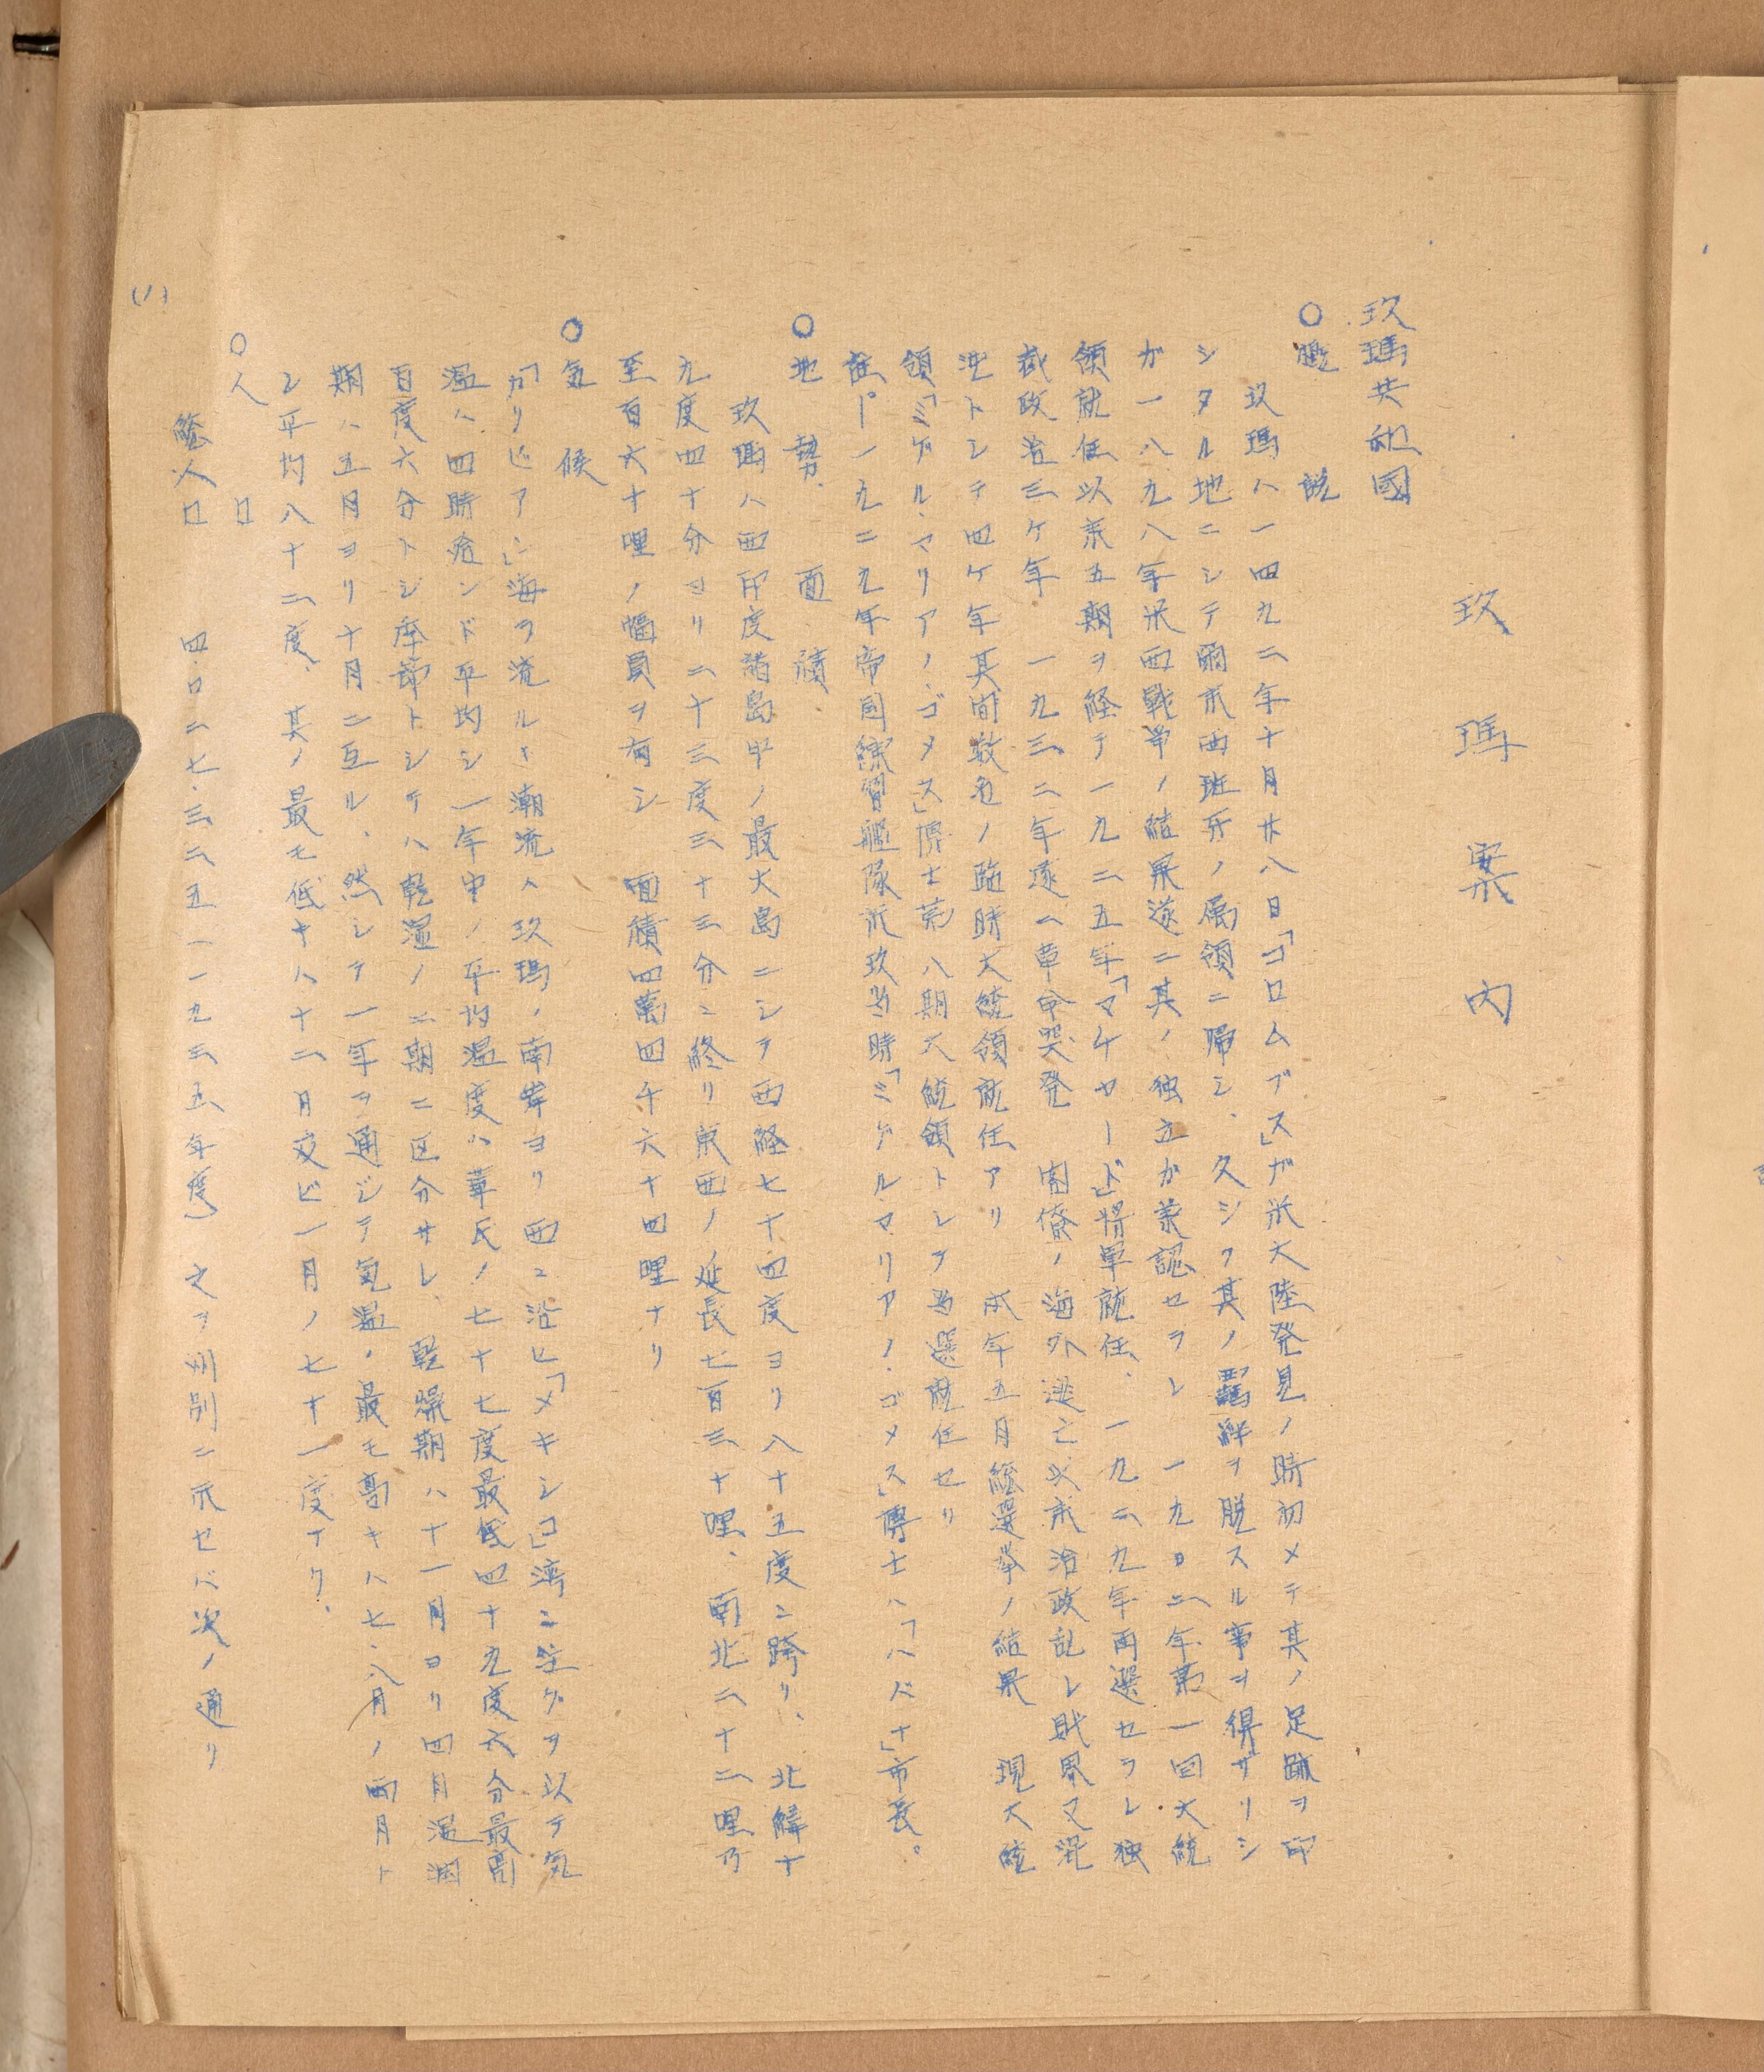 玖瑪案内
玖瑪共和國
○概説
玖瑪ハ一四九二年十月廿八日「コロムブス」ガ米大陸発見ノ時初メテ其ノ足跡ヲ印
シタル地ニシテ爾来西班牙ノ属領ニ帰シ、久シク其ノ羈絆ヲ脱スル事ヲ得ザリシ
ガ一八九八年米西戦争ノ結果遂ニ其ノ独立ガ承認セラレ 一九〇二年第一回大統
領就任以来五期ヲ経テ一九二五年「マチヤード」将軍就任、一九二九年再選セラレ独
裁政治三ケ年 一九三二年遂ニ革命突発 閣僚ノ海外逃亡以来治政乱レ財界マタ混
沌トシテ四ケ年其間数名ノ臨時大統領就任アリ 本年五月総選挙ノ結果 現大統
領「ミゲル、マリアノ、ゴメス」博士第八期大統領トシテ当選就任セリ
註ー一九二九年帝国練習艦隊来玖当時「ミゲル、マリアノ、ゴメス」博士ハ「ハバナ」市長。
○地勢、面積
玖瑪ハ西印度諸島中ノ最大島ニシテ西経七十四度ヨリ八十五度ニ跨リ、北緯十
九度四十分ヨリ二十三度三十三分ニ終リ東西ノ延長七百三十哩、南北二十二哩乃
至百六十哩ノ幅員ヲ有シ 面積四萬四千六十四哩ナリ
○気候
「カリビアン」海ヲ流ルヽ潮流ハ玖瑪ノ南岸ヨリ西ニ沿ヒ「メキシコ」湾ニ注グヲ以テ気
温ハ四時殆ンド平均シ一年中ノ平均温度ハ華氏ノ七十七度最低四十九度六分最高
百度六分トシ季節トシテハ乾湿ノ二期ニ区分サレ、乾燥期ハ十一月ヨリ四月湿潤
期ハ五月ヨリ十月ニ亙ル、然シテ一年ヲ通ジテ気温ノ最モ高キハ七、八月ノ両月ト
シ平均八十二度、其ノ最モ低キハ十二月及ビ一月ノ七十一度ナリ、
○人口
総人口 四、〇二七、三二五 一九三五、年度) 之ヲ州別ニ示セバ次ノ通リ
(1)